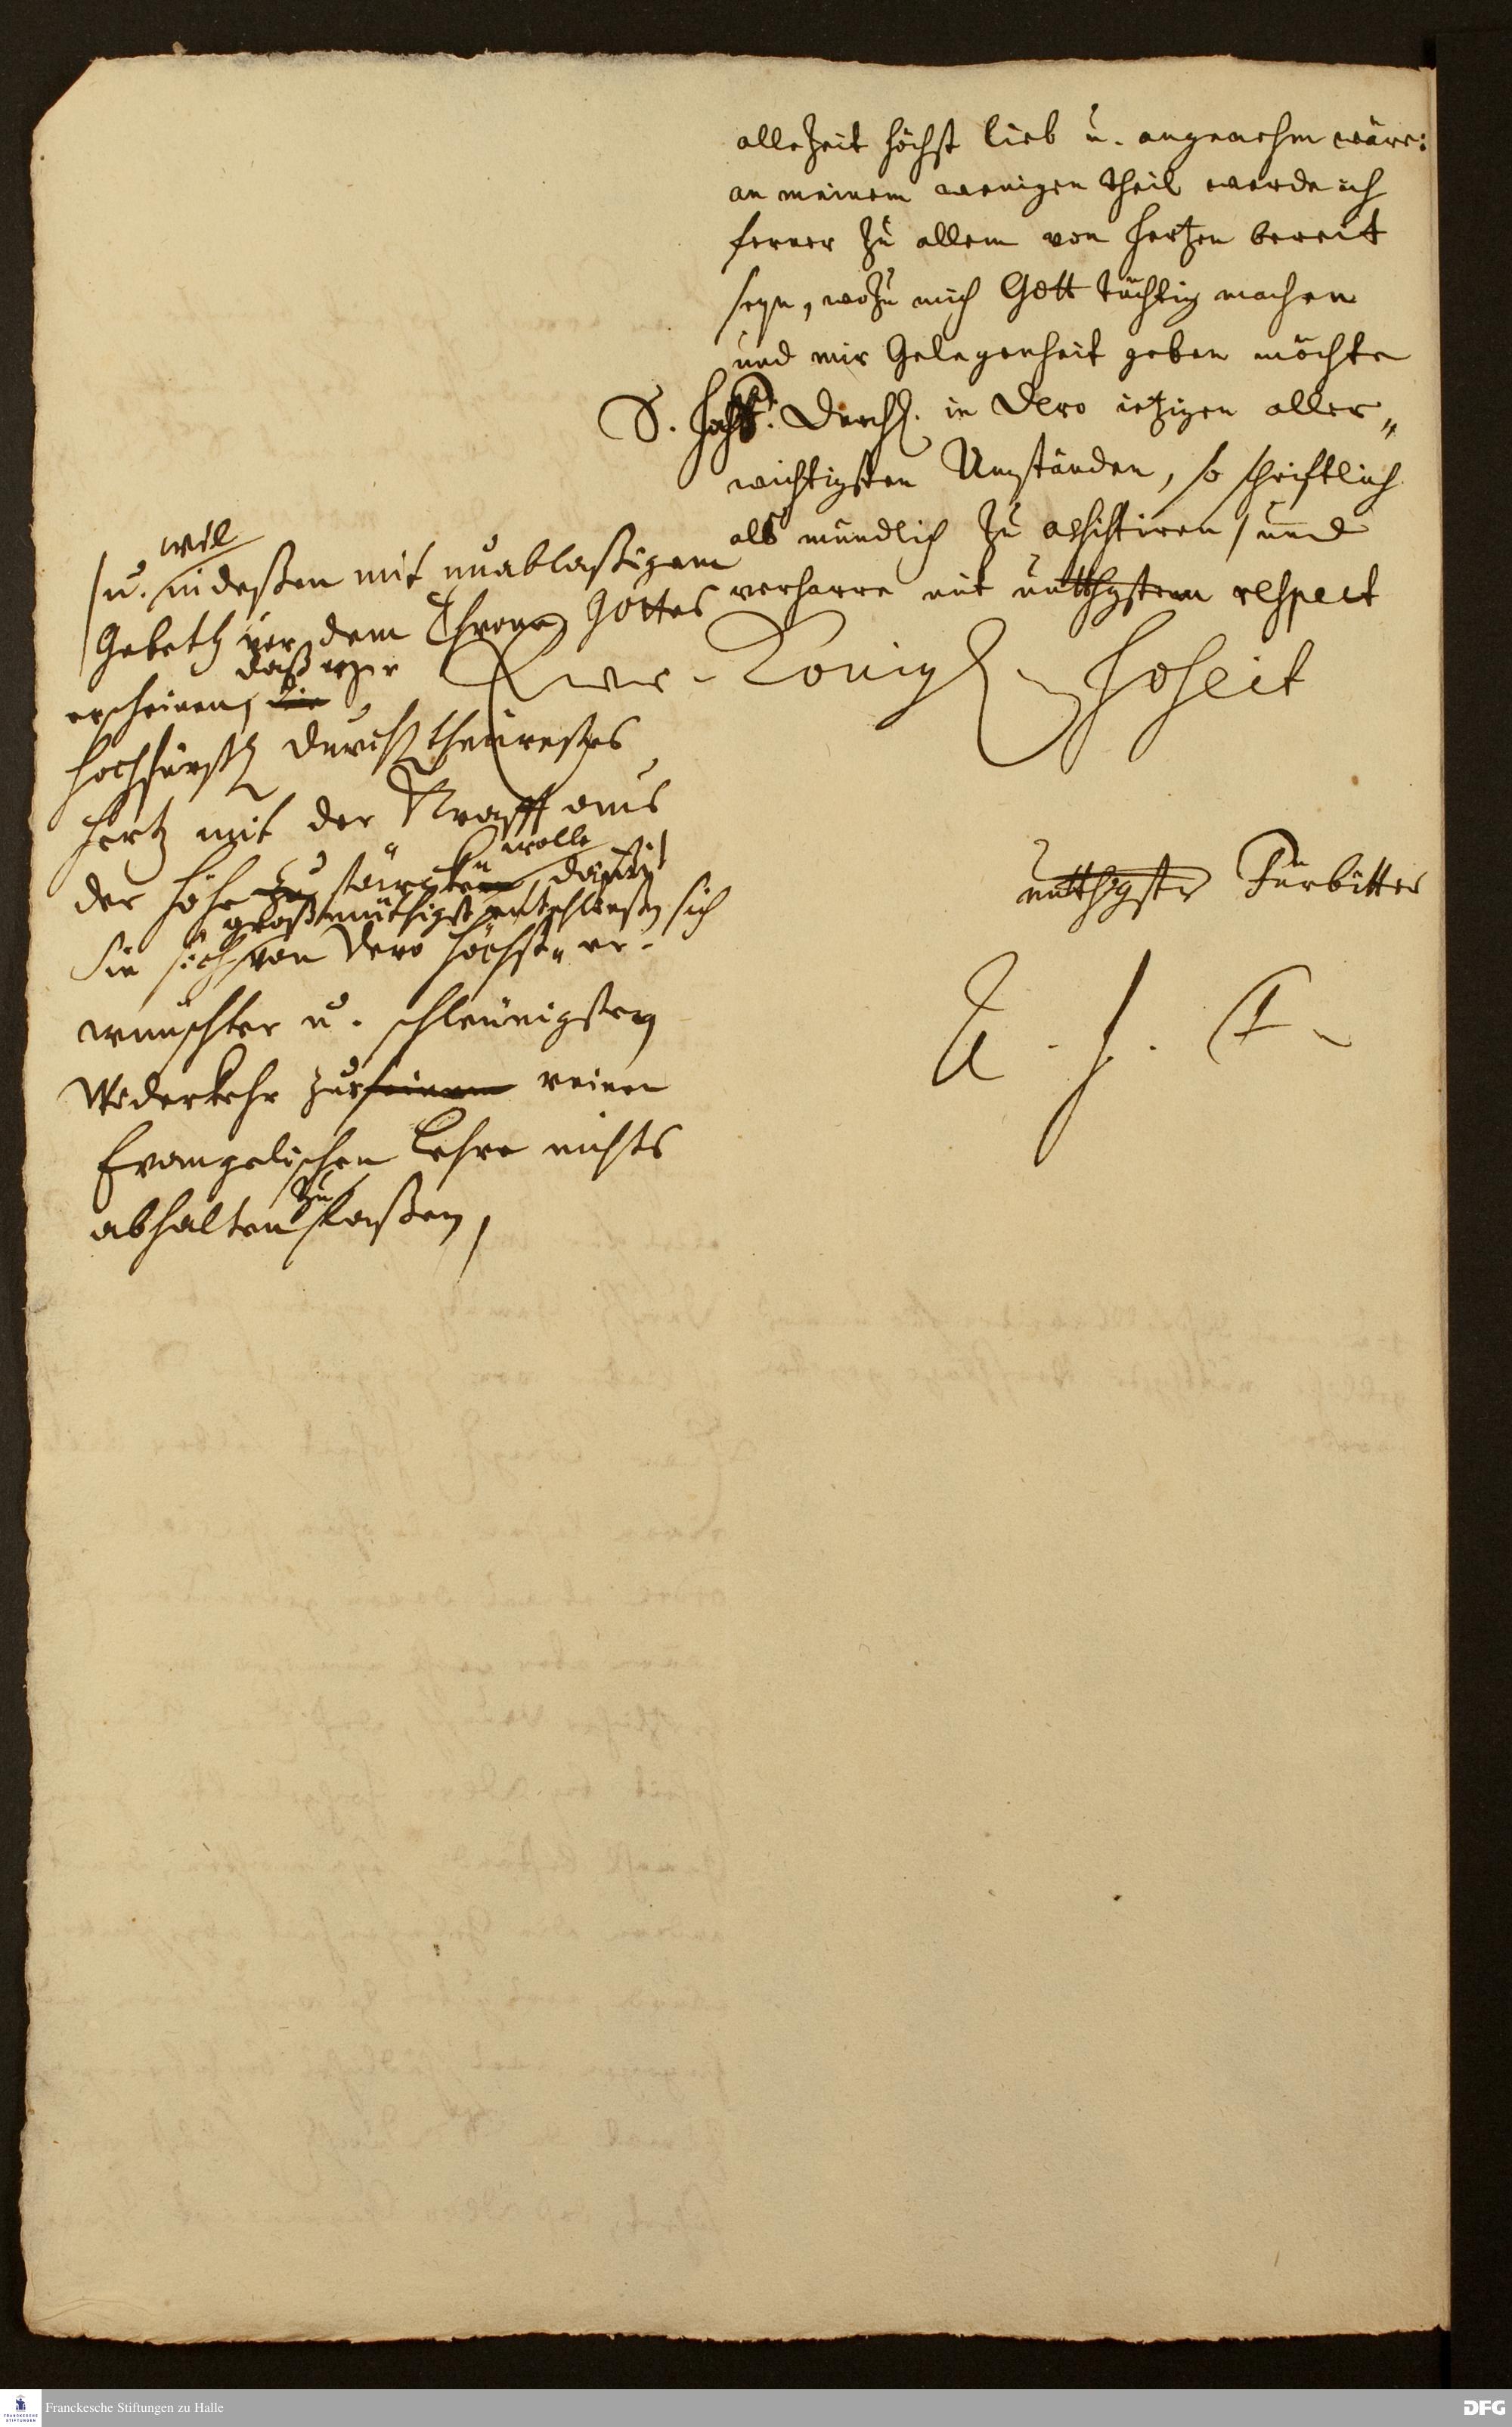 allezeit höchst lieb u. angenehm wäre:
an meinem wenigen theil werde ich
ferner zu allem von Hertzen bereit
seyn, wozu mich Gott tüchtig machen
und mir Gelegenheit geben möchte
S. Hochf. Durchl. in Dero ietzigen aller„
wichtigsten Umständen, so schriftlich
als mündlich zu assistiren / und
verharre mit untthgstem respect
Ewr. Königl. Hoheit
untthgster Fürbitter
A. H. F.
wil
/u. indeßen mit unablaßigem
Gebeth vor dem Throne Gottes
daß er
erscheinen, die
hochfürstl Durchl theurestes
Hertz mit der Krafft aus
wolle
der Höhe zu stärcken, damit
großmüthigst entschließen sich
Sie sich von Dero höchst„ er-
wünschter u. schleunigsten
Wiederkehr zur seinem reinen
Evangelischen Lehre nichts
zu
abhalten laßen,
Franckesche Stiftungen zu Halle
DFG